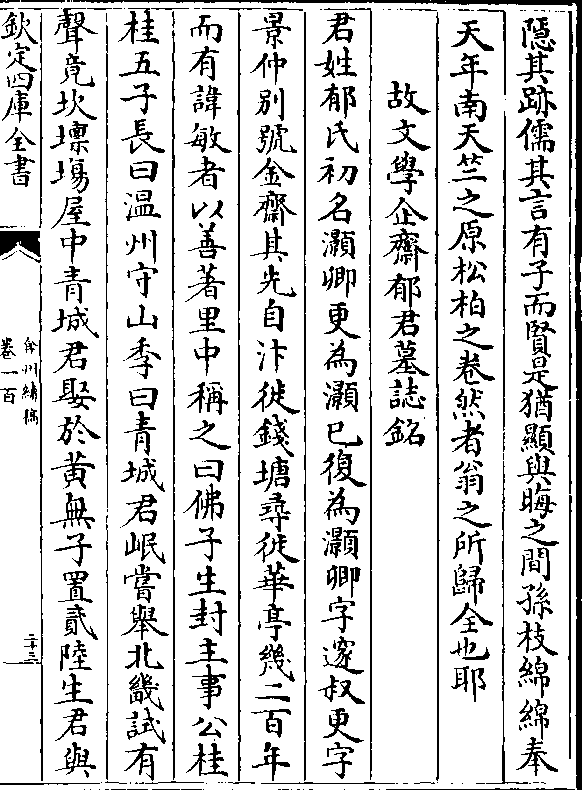 隱其跡儒其言有子而賢是猶顯與晦之間孫枝綿綿奉
天年南天竺之原松柏之卷然者翁之所歸全也耶
故文學企齋郁君墓誌銘
君姓郁氏初名灝卿更為灝已復為灝卿字邃叔更字
景仲別號企齋其先自汴徙錢塘尋徙華亭幾二百年
而有諱敏者以善著里中稱之曰佛子生封主事公桂
桂五子長曰温州守山季曰青城君岷嘗舉北畿試有
聲竟坎壈場屋中青城君娶於黃無子置貳陸生君與
欽定四庫全書
弇州續稿
卷一百
二十三